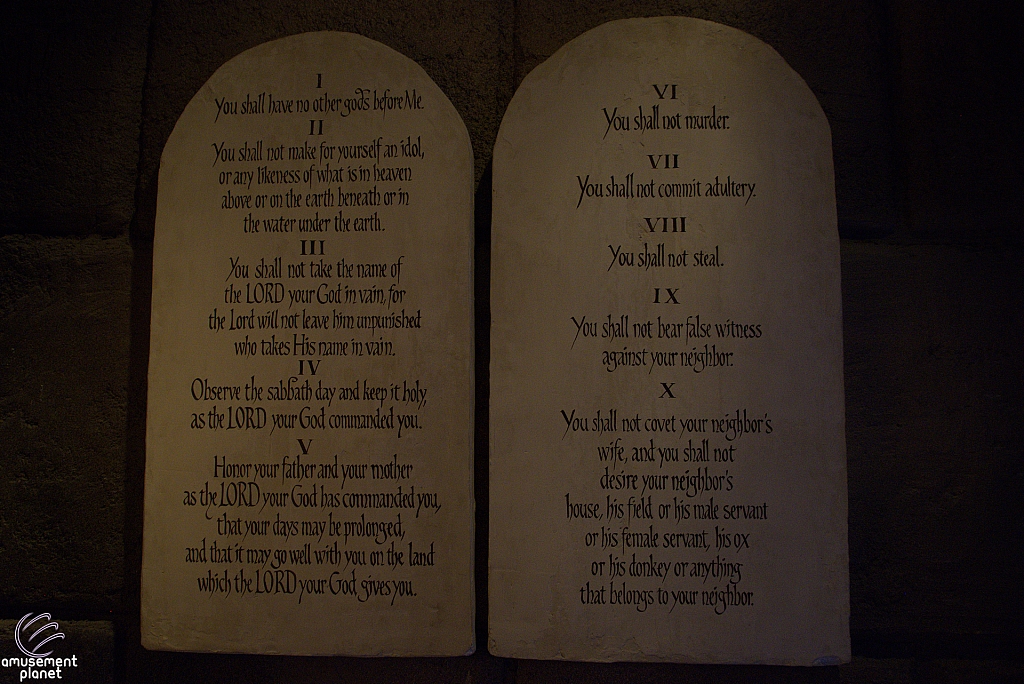 I
You shall have no other gods before Me.
II
You shall not make for yourself an idol,
or any likeness of what is in heaven
above or on the earth beneath or in
the water under the earth.
III
You shall not take the name of
the LORD your God in vain, for
the Lord will not leave him unpunished
who takes His name in vain.
IV
Observe the sabbath day and keep it holy,
as the LORD your God commanded you.
V
Honor your father and your mother
as the LORD your God has commanded you,
that your days may be prolonged,
and that it may go well with you on the land
which the LORD your God gives you.
VI
You shall not murder.
VII
You shall not commit adultery.
VIII
You shall not steal.
IX
You shall not bear false witness
against your neighbor.
X
You shall not covet your neighbor's
wife, and you shall not
desire your neighbor's
house, his field or his male servant
or his female servant, his ox
or his donkey or anything
that belongs to your neighbor.
amusement
planet